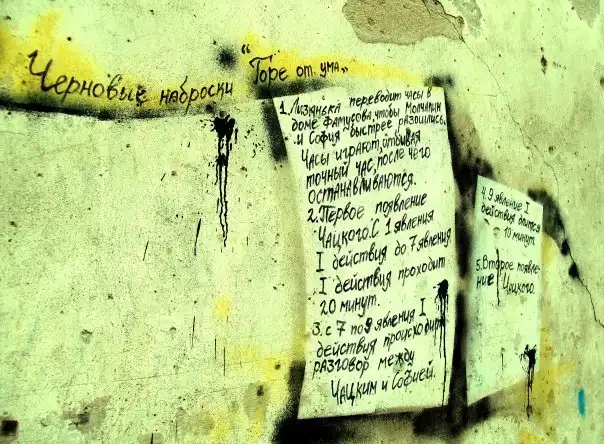 Черновые наброски
"Горе от ума"
1. Лизанька переводит часы в
доме Фамусова, чтобы Молчалин
и София быстрее разошлись.
Часы играют, отбивая
точный час, после чего
останавливаются.
2. Первое появление
Чацкого. С 1 явления
I действия до 7 явления
I действия проходит
20 минут.
3. с 7 по 9 явления I
действия происходит
разговор между
Чацким и Софией.
4. 9 явление I
действия длится
10 минут.
5. Второе появле-
ние Чацкого.